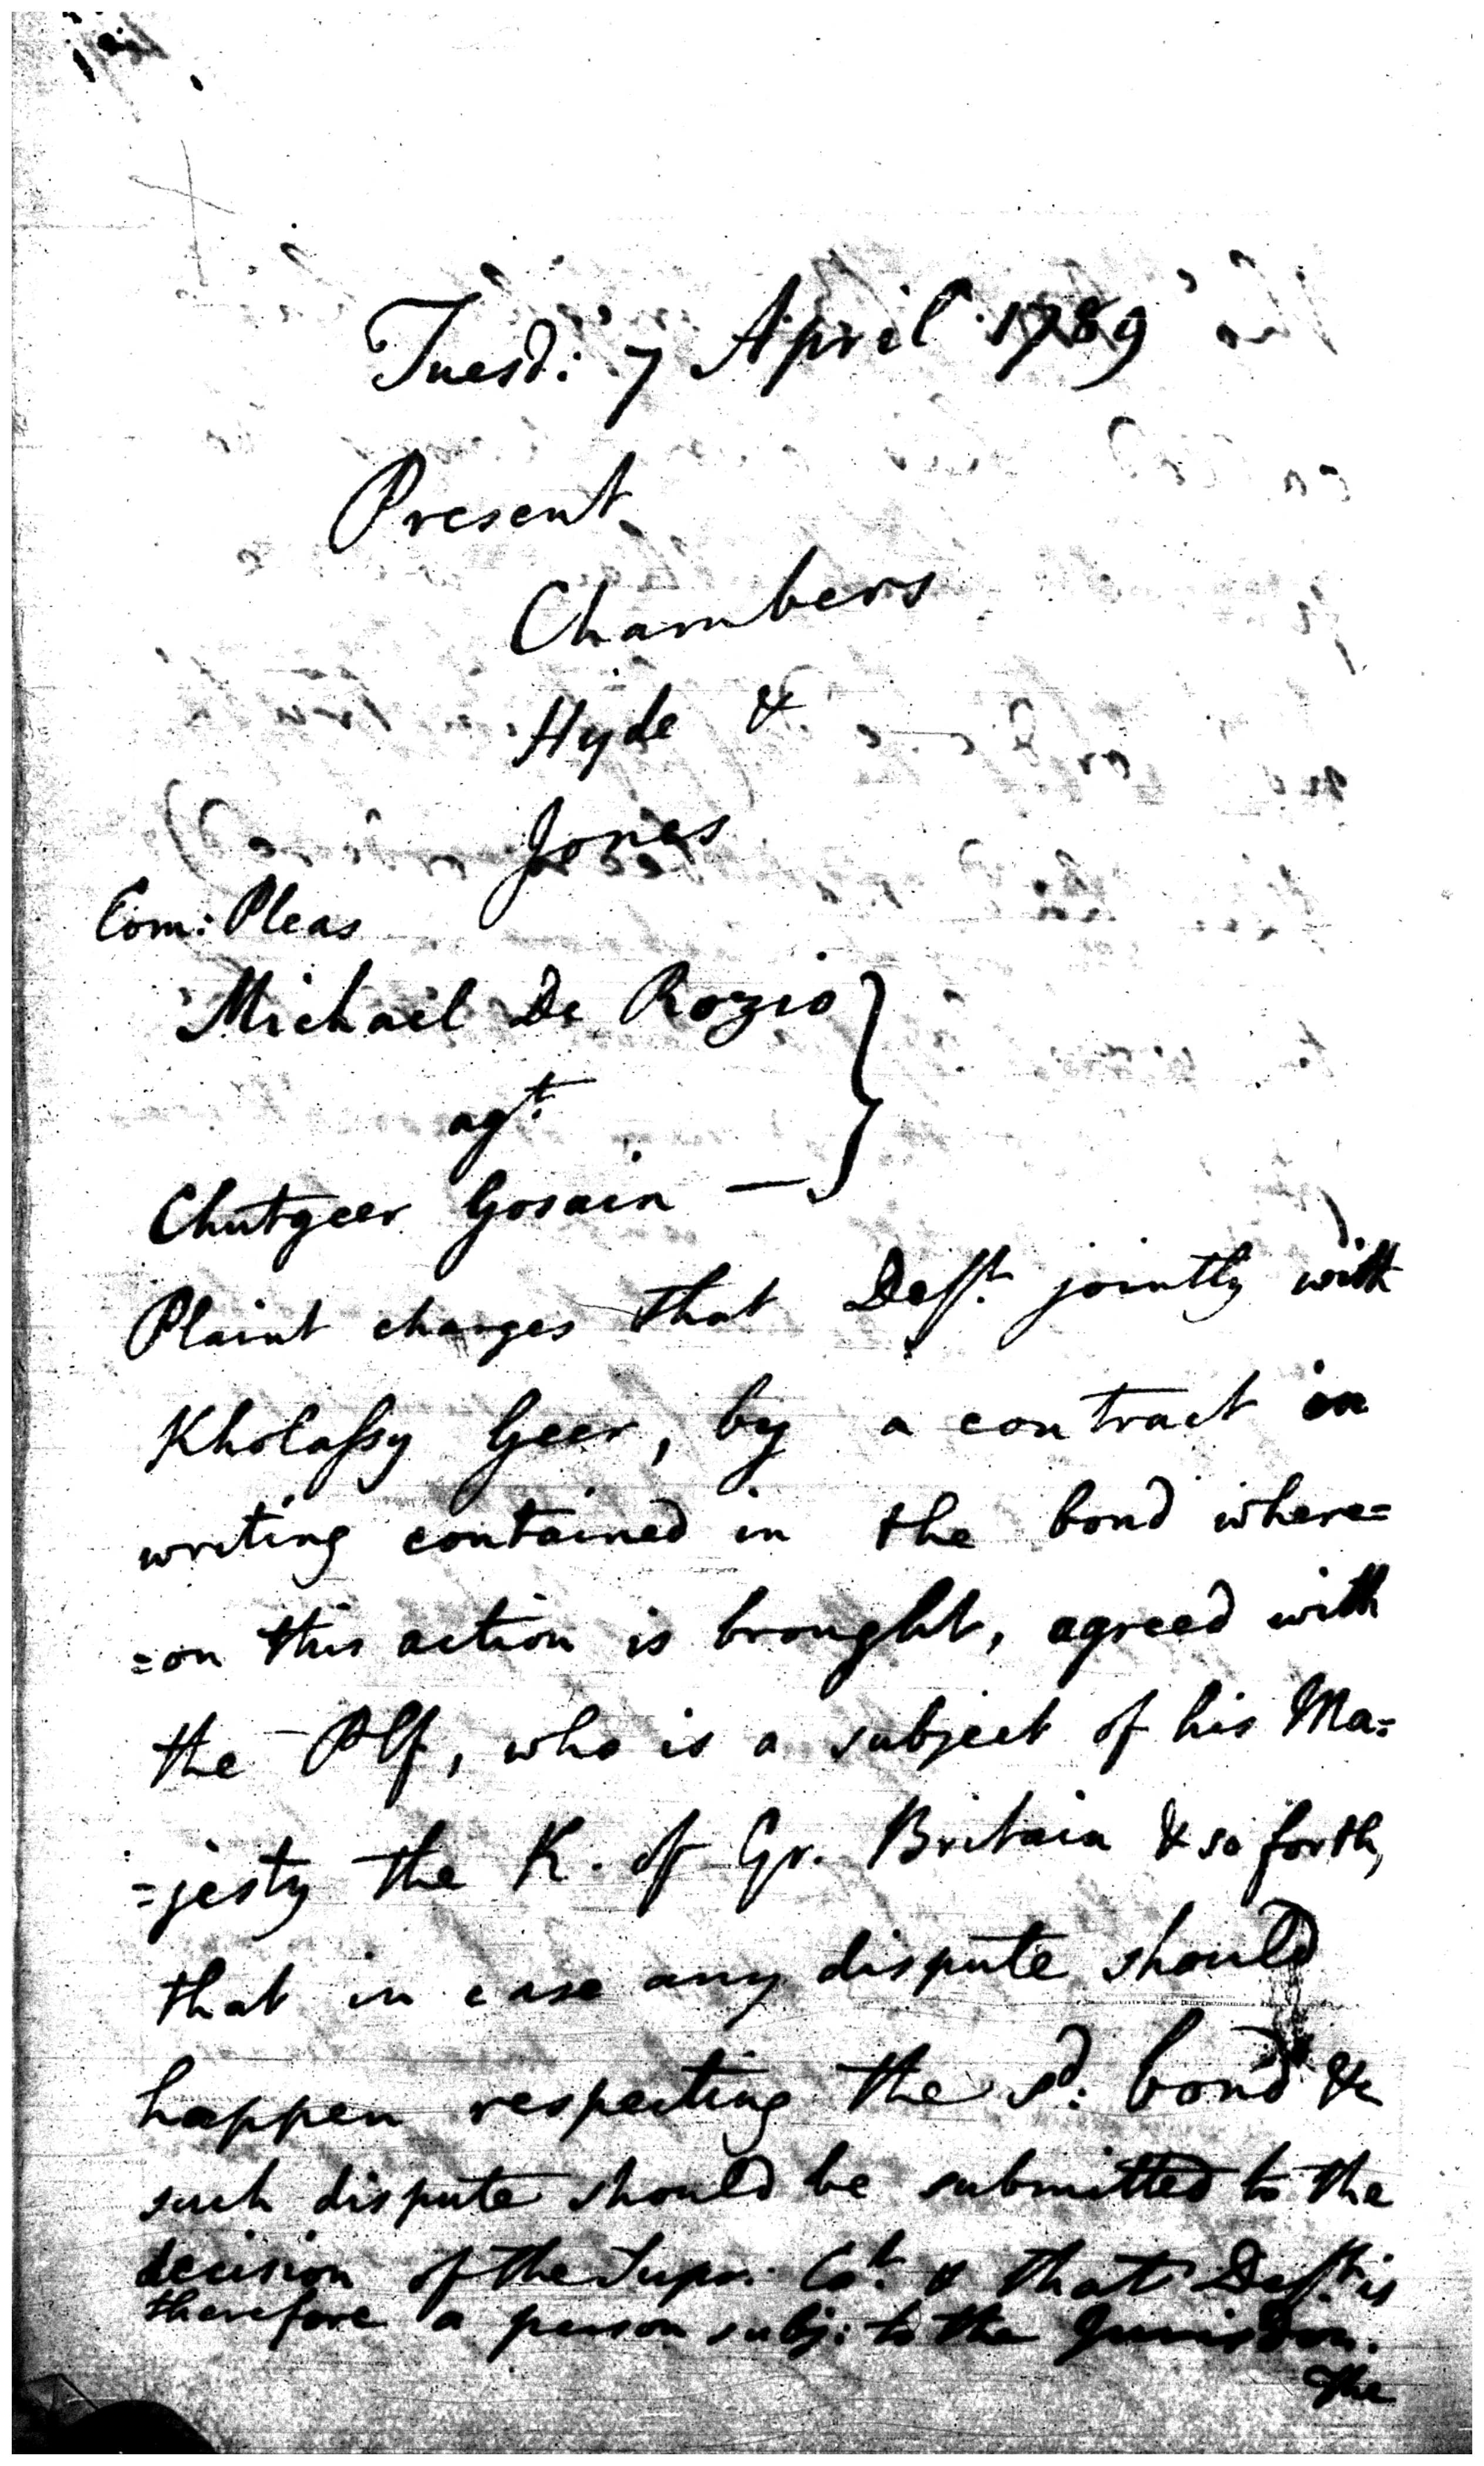 Tuesd: 7 April 1789
Present
Chambers
Hyde &
Jones
Com: Pleas
Michael De Rozio
agt.
Chutgeer Gosain —
Plaint charges that Defft. jointly with
Kholassy Geer, by a contract in
writing contained in the bond where=
=on this action is brought, agreed with
the Plf, who is a subject of his Ma=
=jesty the K. of Gr. Britain & so forth,
that in case any dispute should
happen respecting the sd. bond &c
such dispute should be submitted to the
decision of the Supr. Ct. & that Defft is
therefore a person subj: to the Jurisdion.
The